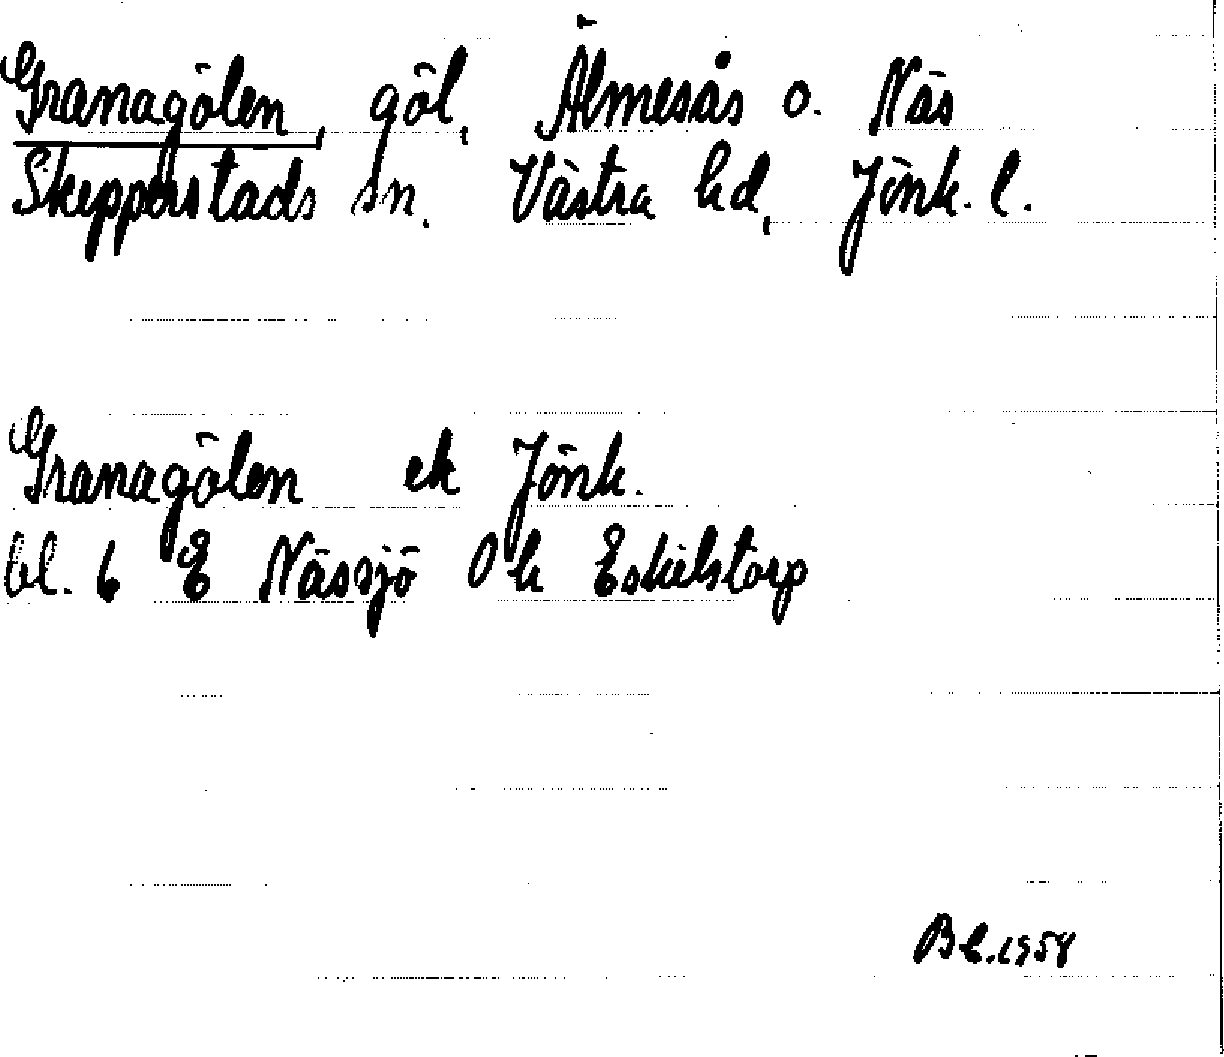 Granagölen, göl, Älmesås o. Näs
Skepperstads sn. Västra hd, Jönk. l.
Granagölen ek Jönk.
bl. 6 E Nässjö Ok Eskilstorp
1958